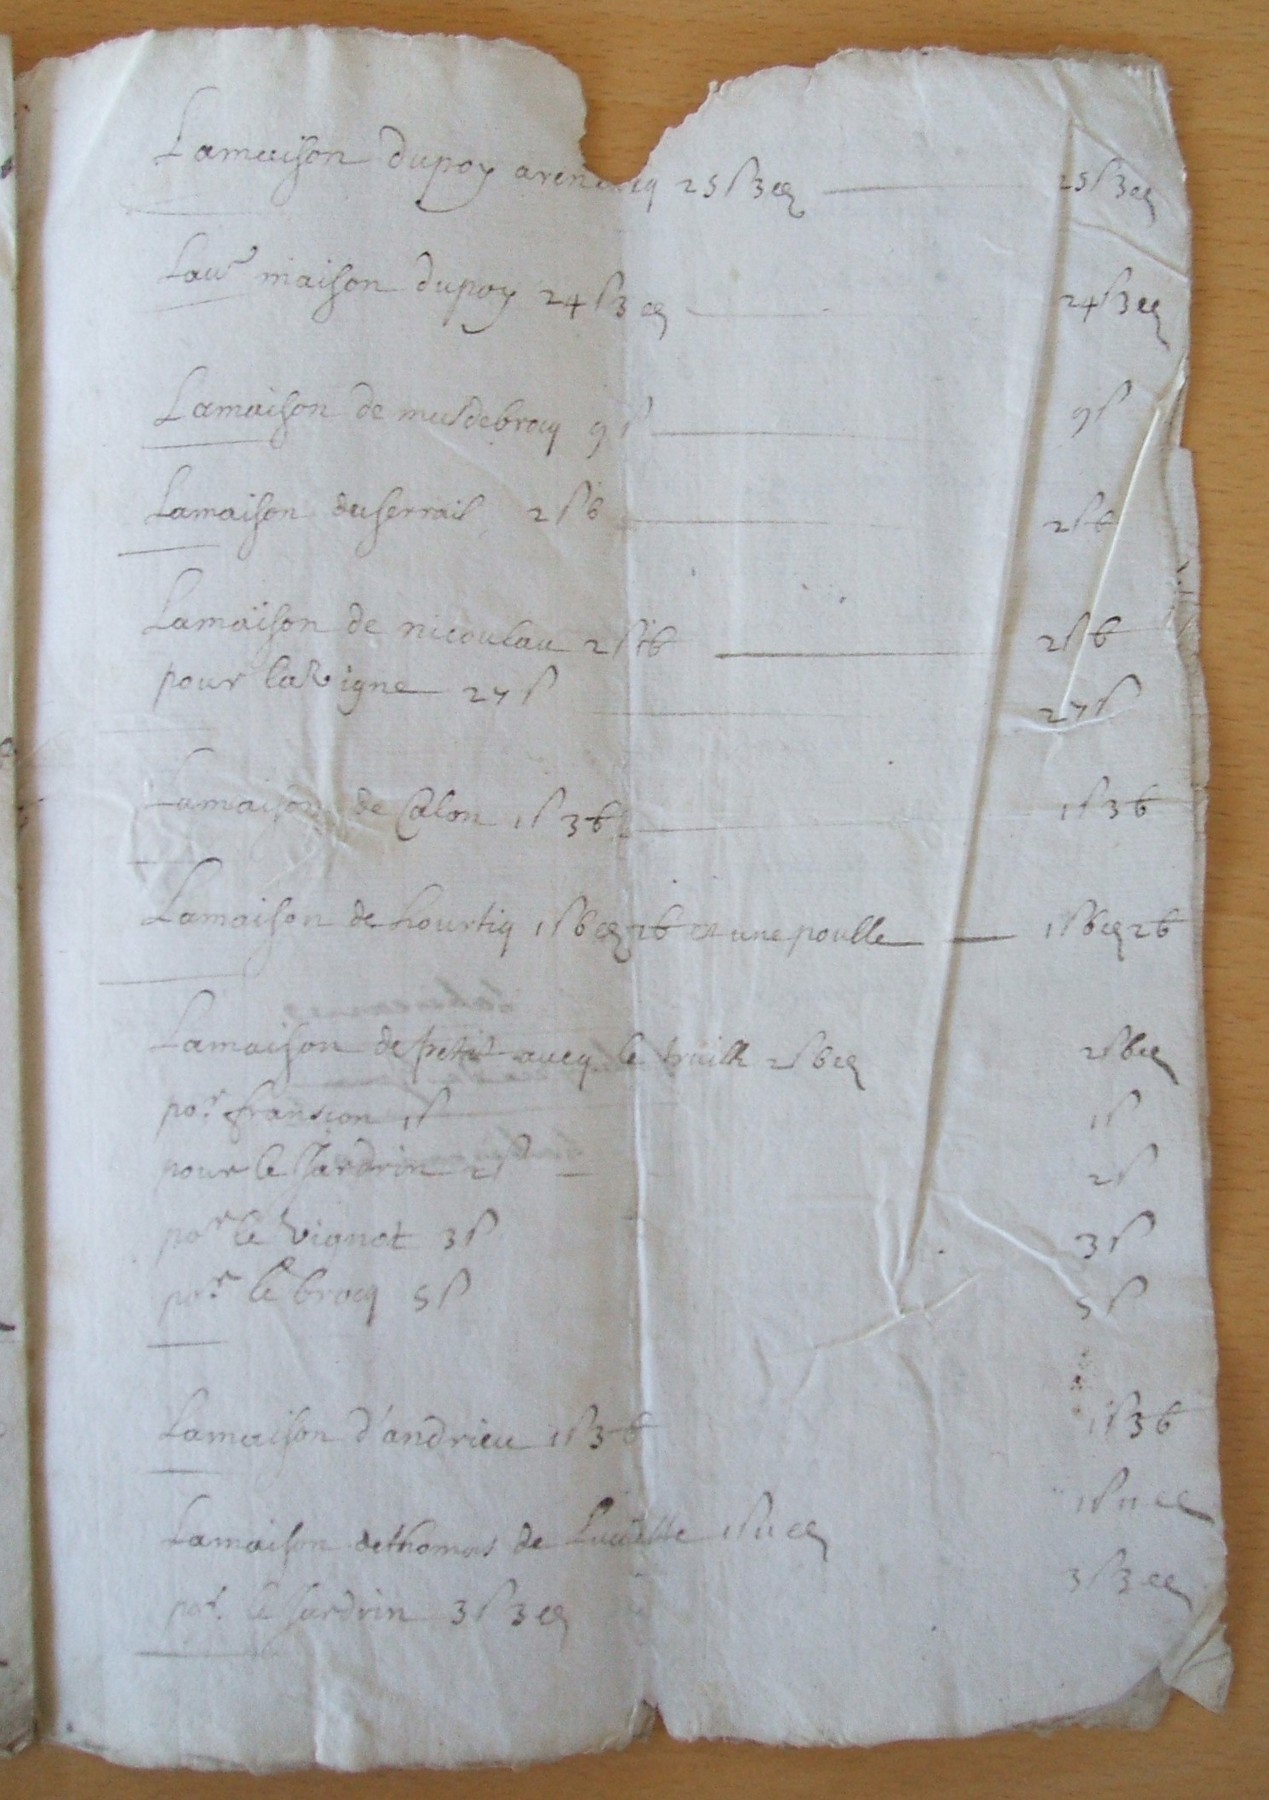 Lamaison dupoy 25 s 3 25 s 3
Lau^r maison dupoy 24 s 3 24 s 3
Lamaison de musdebrocq 9 s 9 s
Lamaison duserrail 2 s 6 2 s 6
Lamaïson de nicoulau 2 s 6 2 s 6
pour laVigne 27 s 27 s
Lamaison de Calon 1 s 3 6 1 s 3 6
Lamaison de hourtiq 1 s 6 26 et une poulle 1 s 6 26
Lamaison de petit aucq le traill 2 s 6 2 s 6
po^r. fransion 1 s 1 s
pour le Jardrin 2 s 2 s
po^r le vignot 3 s 3 s
po^r. le brocq 5 s 5 s
Lamaison d'andrieu 1 s 3 6 1 s 3 6
Lamaison dethomas de 1 s 11 1 s 11
po^r. le Jardrin 3 s 3 3 s 3